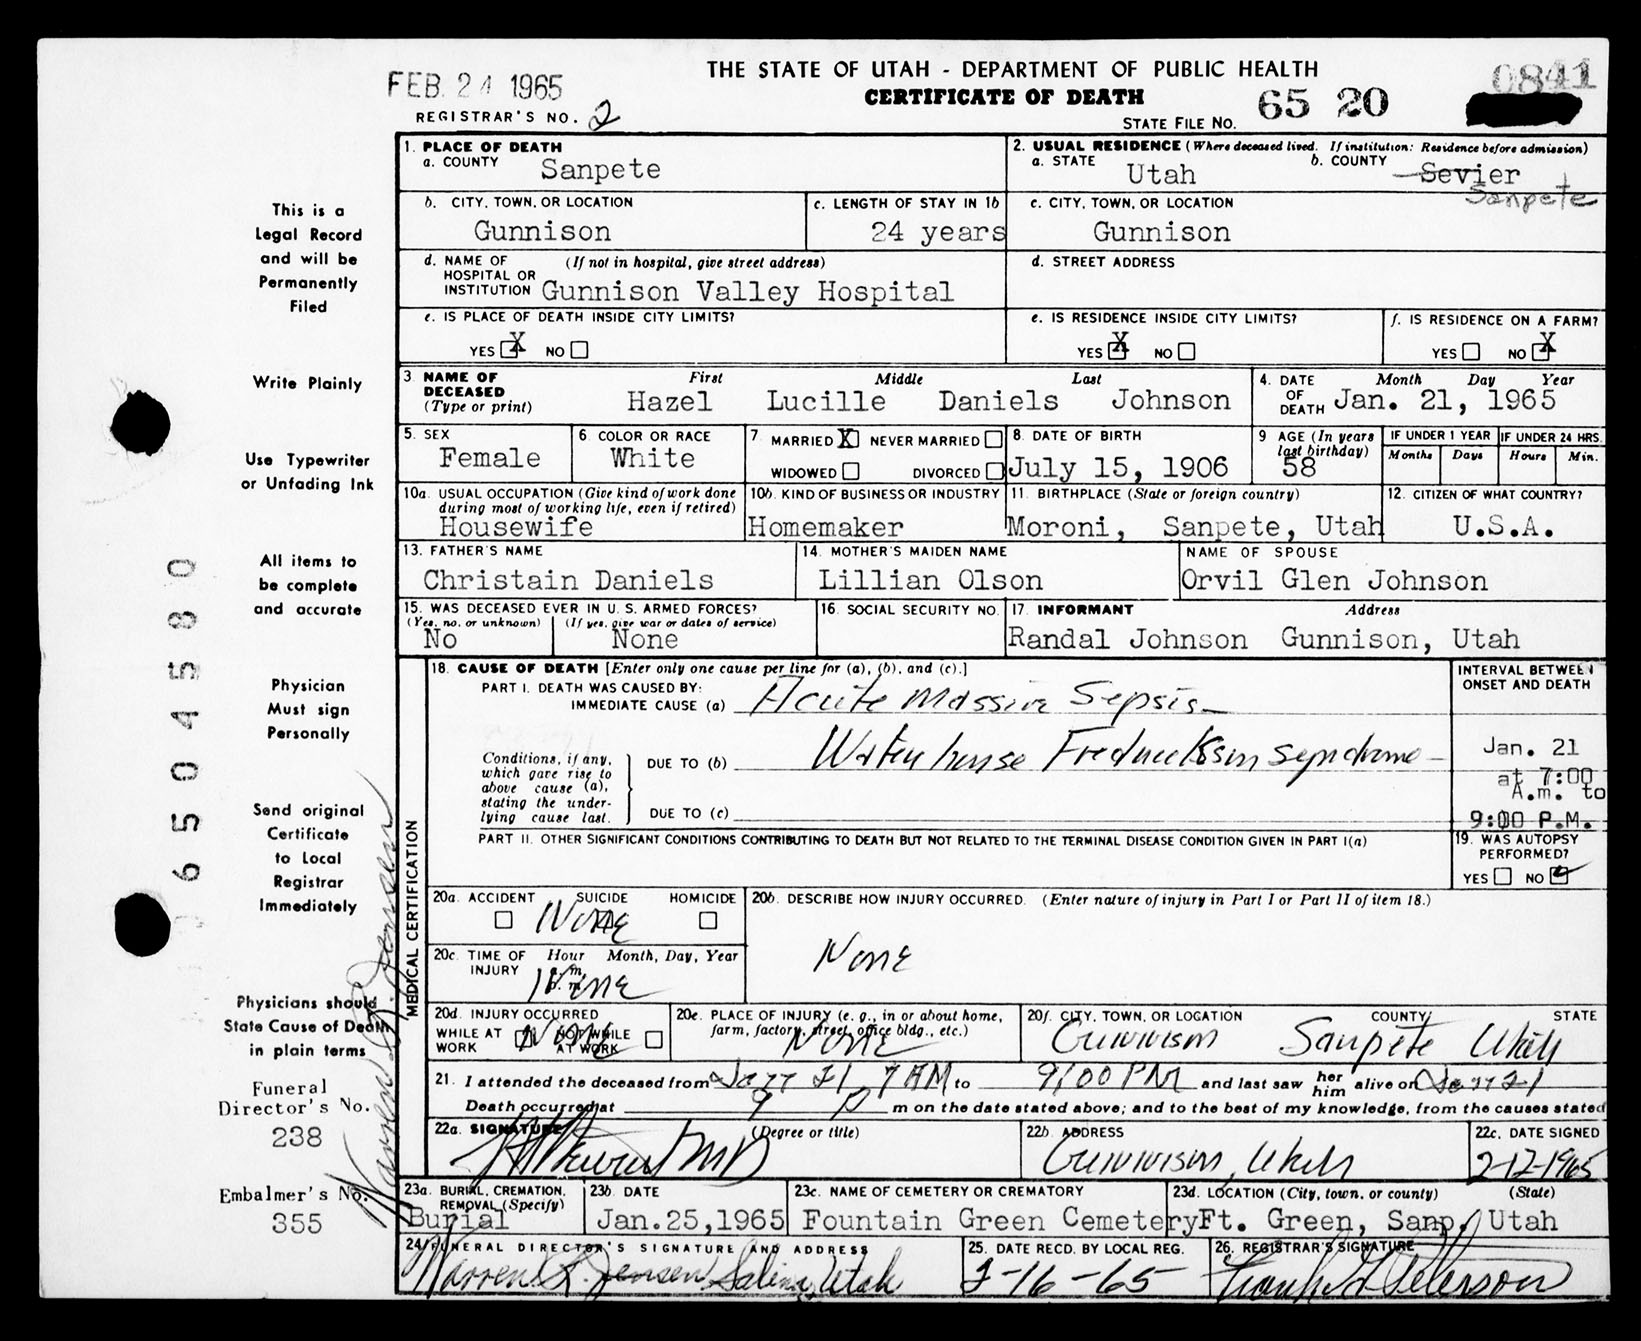 THE STATE OF UTAH - DEPARTMENT OF PUBLIC HEALTH
CERTIFICATE OF DEATH
FEB 24 1965
REGISTRAR'S NO. 2
STATE FILE NO. 65 20
0841
1. PLACE OF DEATH
a. COUNTY Sanpete
2. USUAL RESIDENCE (Where deceased lived. If institution: Residence before admission)
a. STATE Utah b. COUNTY Sevier
Sanpete
b. CITY, TOWN, OR LOCATION Gunnison
c. LENGTH OF STAY IN 1b 24 years
c. CITY, TOWN, OR LOCATION Gunnison
d. NAME OF HOSPITAL OR INSTITUTION (If not in hospital, give street address) Gunnison Valley Hospital
d. STREET ADDRESS
e. IS PLACE OF DEATH INSIDE CITY LIMITS?
YES X NO
e. IS RESIDENCE INSIDE CITY LIMITS?
YES X NO
f. IS RESIDENCE ON A FARM?
YES NO X
3. NAME OF DECEASED (Type or print)
First Middle Last
Hazel Lucille Daniels Johnson
4. DATE OF DEATH Month Day Year
Jan. 21, 1965
5. SEX Female
6. COLOR OR RACE White
7. MARRIED X NEVER MARRIED
WIDOWED DIVORCED
8. DATE OF BIRTH July 15, 1906
9 AGE (In years last birthday) 58
IF UNDER 1 YEAR Months Days
IF UNDER 24 HRS. Hours Min.
10a. USUAL OCCUPATION (Give kind of work done during most of working life, even if retired)
Housewife
10b. KIND OF BUSINESS OR INDUSTRY
Homemaker
11. BIRTHPLACE (State or foreign country)
Moroni, Sanpete, Utah
12. CITIZEN OF WHAT COUNTRY?
U.S.A.
13. FATHER'S NAME
Christain Daniels
14. MOTHER'S MAIDEN NAME
Lillian Olson
NAME OF SPOUSE
Orvil Glen Johnson
15. WAS DECEASED EVER IN U. S. ARMED FORCES?
(Yes, no, or unknown) (If yes, give war or dates of service)
No None
16. SOCIAL SECURITY NO.
17. INFORMANT Address
Randal Johnson Gunnison, Utah
MEDICAL CERTIFICATION
18. CAUSE OF DEATH [Enter only one cause per line for (a), (b), and (c).]
PART I. DEATH WAS CAUSED BY:
IMMEDIATE CAUSE (a) Acute Massive Sepsis
Conditions, if any, which gave rise to above cause (a), stating the underlying cause last.
DUE TO (b) Waterhouse Fredrickson syndrome
DUE TO (c)
INTERVAL BETWEEN ONSET AND DEATH
Jan. 21
at 7:00
A.m. to
9:00 P.M.
PART II. OTHER SIGNIFICANT CONDITIONS CONTRIBUTING TO DEATH BUT NOT RELATED TO THE TERMINAL DISEASE CONDITION GIVEN IN PART I(a)
19. WAS AUTOPSY PERFORMED?
YES NO
20a. ACCIDENT SUICIDE HOMICIDE
None
20b. DESCRIBE HOW INJURY OCCURRED. (Enter nature of injury in Part I or Part II of item 18.)
None
20c. TIME OF INJURY Hour a.m. p.m. Month, Day, Year
None
20d. INJURY OCCURRED
WHILE AT WORK NOT WHILE AT WORK
None
20e. PLACE OF INJURY (e. g., in or about home, farm, factory, street, office bldg., etc.)
None
20f. CITY, TOWN, OR LOCATION COUNTY STATE
Gunnison Sanpete Utah
21. I attended the deceased from Jan 21 7 AM to 9:00 PM and last saw her him alive on Jan 21
Death occurred at 9 P m on the date stated above; and to the best of my knowledge, from the causes stated
22a. SIGNATURE (Degree or title)
MD
22b. ADDRESS
Gunnison, Utah
22c. DATE SIGNED
2-12-1965
23a. BURIAL, CREMATION, REMOVAL (Specify)
Burial
23b. DATE
Jan.25,1965
23c. NAME OF CEMETERY OR CREMATORY
Fountain Green Cemetery
23d. LOCATION (City, town, or county) (State)
Ft. Green, Sanp. Utah
24. FUNERAL DIRECTOR'S SIGNATURE AND ADDRESS
Warren L. Jensen Salina, Utah
25. DATE RECD. BY LOCAL REG.
2-16-65
26. REGISTRAR'S SIGNATURE
Frank Peterson
This is a
Legal Record
and will be
Permanently
Filed
Write Plainly
Use Typewriter
or Unfading Ink
All items to
be complete
and accurate
Physician
Must sign
Personally
Send original
Certificate
to Local
Registrar
Immediately
Physicians should
State Cause of Death
in plain terms
Funeral
Director's No.
238
Embalmer's No.
355
6504580
Warren L. Jensen